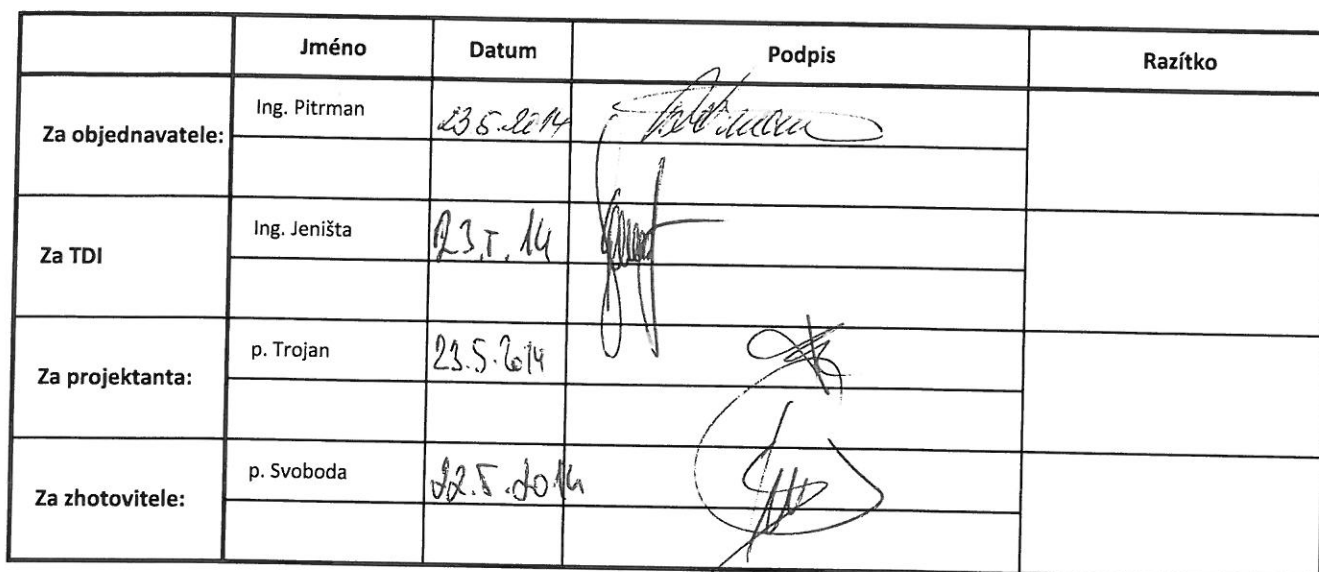 Jméno Datum Podpis Razítko
Za objednavatele: Ing. Pitrman 23 5. 2014
Za TDI Ing. Jeništa 23. 5. 14
Za projektanta: p. Trojan 23.5.2014
Za zhotovitele: p. Svoboda 22.5.2014